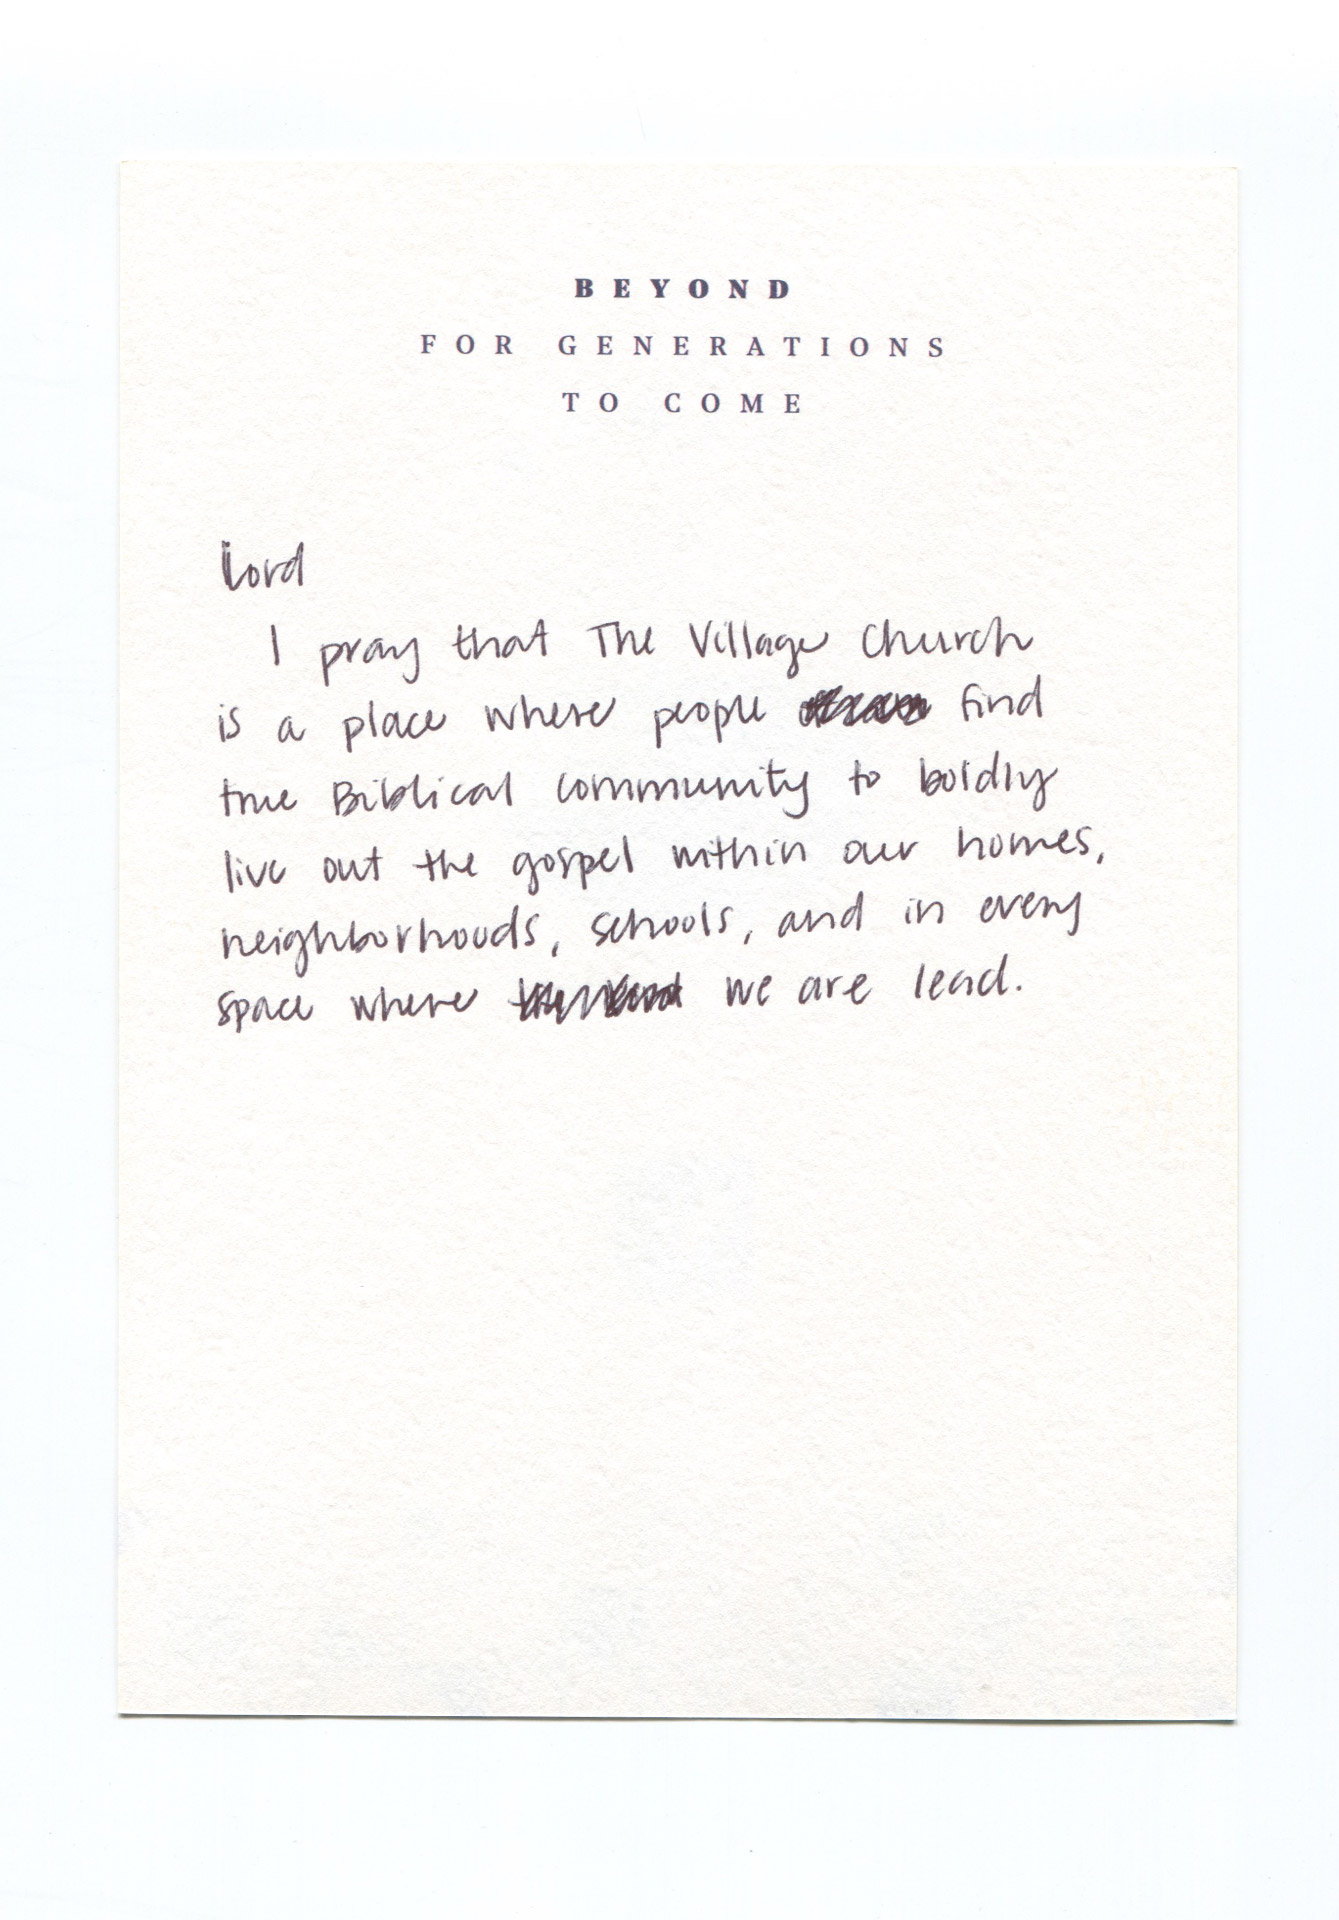 BEYOND
FOR GENERATIONS
TO COME
Lord
I pray that The Village Church
is a place where people find
true Biblical community to boldly
live out the gospel within our homes,
neighborhoods, schools, and in every
space where we are lead.